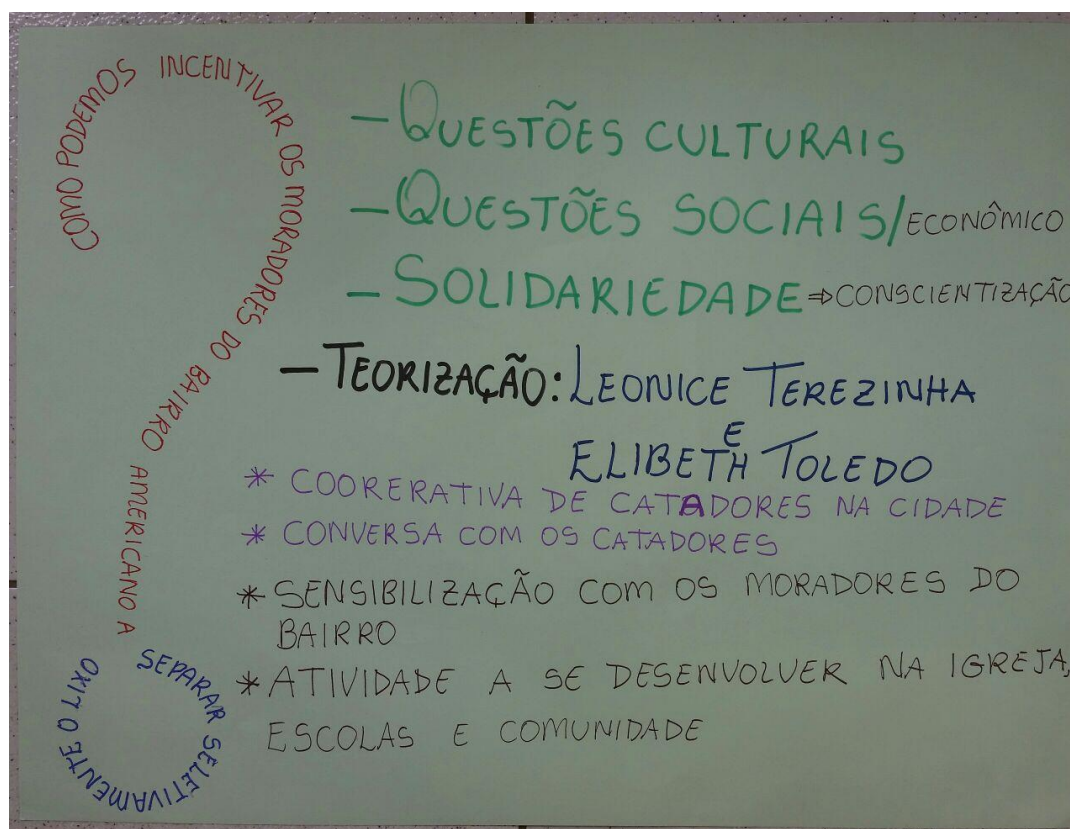 COMO PODEMOS INCENTIVAR OS MORADORES DO BAIRRO AMERICANO A
SEPARAR SELETIVAMENTE O LIXO
– QUESTÕES CULTURAIS
– QUESTÕES SOCIAIS/ECONÔMICO
– SOLIDARIEDADE ⇒ CONSCIENTIZAÇÃO
– TEORIZAÇÃO: LEONICE TEREZINHA
E
ELIBETH TOLEDO
* COORERATIVA DE CATADORES NA CIDADE
* CONVERSA COM OS CATADORES
* SENSIBILIZAÇÃO COM OS MORADORES DO
BAIRRO
* ATIVIDADE A SE DESENVOLVER NA IGREJA,
ESCOLAS E COMUNIDADE